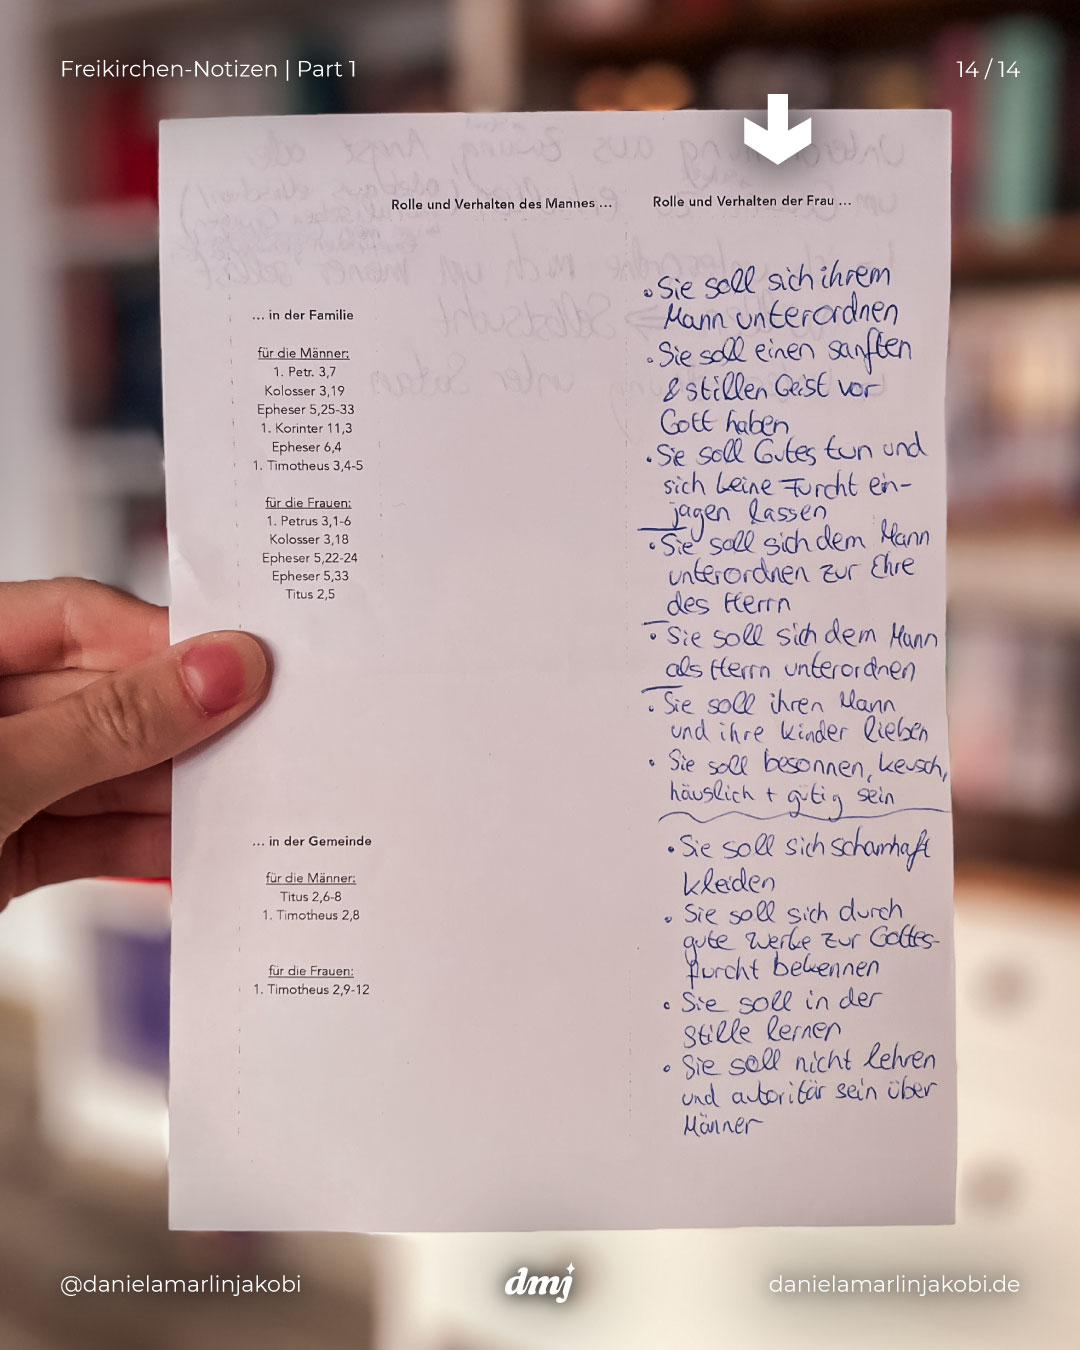 Freikirchen-Notizen | Part 1
14 / 14
Rolle und Verhalten des Mannes ...
Rolle und Verhalten der Frau ...
... in der Familie
für die Männer:
1. Petr. 3,7
Kolosser 3,19
Epheser 5,25-33
1. Korinter 11,3
Epheser 6,4
1. Timotheus 3,4-5
für die Frauen:
1. Petrus 3,1-6
Kolosser 3,18
Epheser 5,22-24
Epheser 5,33
Titus 2,5
... in der Gemeinde
für die Männer:
Titus 2,6-8
1. Timotheus 2,8
für die Frauen:
1. Timotheus 2,9-12
• Sie soll sich ihrem
Mann unterordnen
• Sie soll einen sanften
& stillen Geist vor
Gott haben
• Sie soll Gutes tun und
sich keine Furcht ein-
jagen lassen
• Sie soll sich dem Mann
unterordnen zur Ehre
des Herrn
• Sie soll sich dem Mann
als Herrn unterordnen
• Sie soll ihren Mann
und ihre Kinder lieben
• Sie soll besonnen, keusch,
häuslich + gütig sein
• Sie soll sich schamhaft
kleiden
• Sie soll sich durch
gute Werke zur Gottes-
furcht bekennen
• Sie soll in der
Stille lernen
• Sie soll nicht lehren
und autoritär sein über
Männer
@danielamarlinjakobi
dmj
danielamarlinjakobi.de